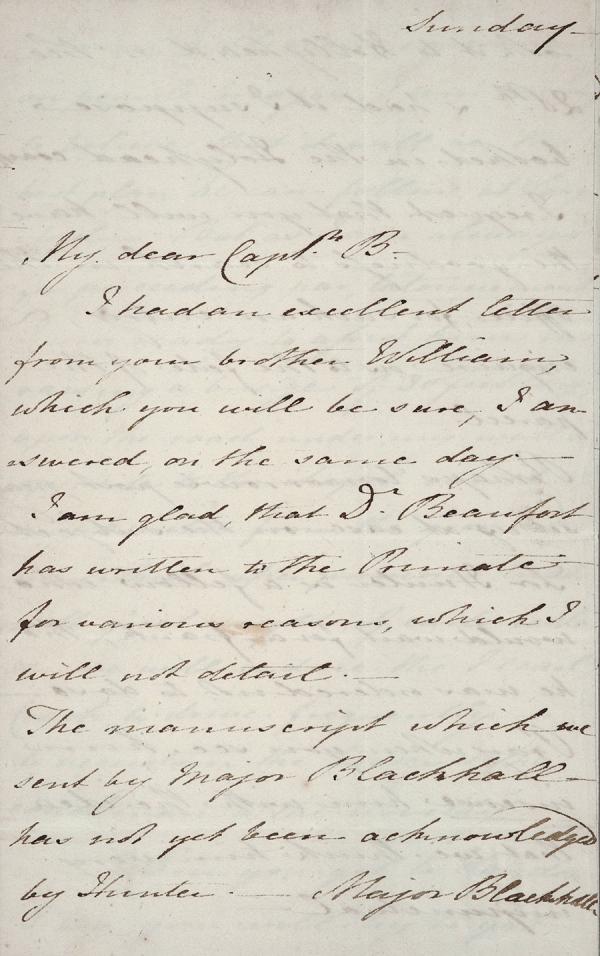 Sunday—
My dear Capt.n B—
I had an excellent letter
from your brother William,
which you will be sure, I an-
swered, on the same day—
I am glad, that Dr. Beaufort
has written to the Primate
for various reasons, which I
will not detail.—
The manuscript which we
sent by Major Blackhall—
has not yet been acknowledged
by Hunter.— Major Blackhall